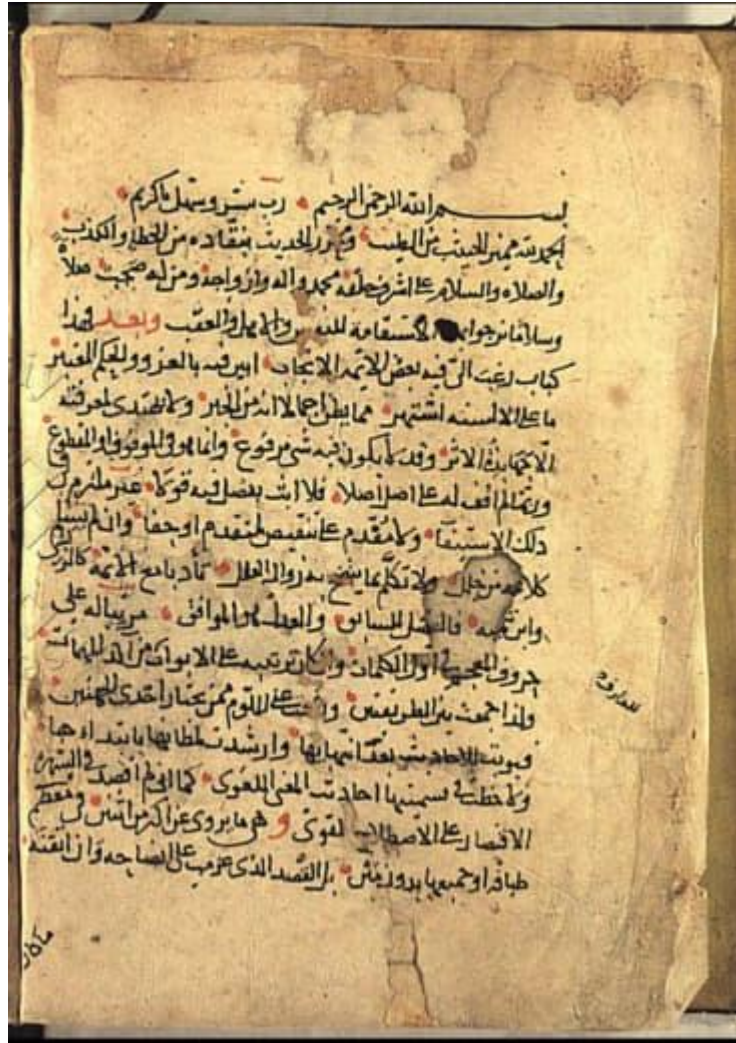 بسم الله الرحمن الرحيم رب يسر وسهل يا كريم
الحمد لله مميز الخبيث من الطيب ومحرز الحديث بنقاده من الخطا والكذب
والصلاه والسلام على اشرف خلقه محمد واله وازواجه ومن له صحب صلاة
وسلاما نرجوا بهما الاستقامة للنفس والاهل والعقب وبعد فهذا
كتاب رغب الي فيه بعض الائمه الانجاب ابين فيه بالعزو والحكم المعتبر
ما على الالسنه اشتهر مما يظن اجمالا انه من الخبر ولا يهتدى لمعرفته
الا جهابذة الاثر وقد لا يكون فيه شي مرفوع وانما هو في الموقوف او المقطوع
وربما لم اقف له على اصل اصلا فلا ابت بفصل فيه قولا غير ملتزم في
ذلك الاستيفا ولا مقدم على تنقيص لمتقدم او جفا وان لم يسلم
كلامه من خلل ولا تكلم بما يتضح به زوال العلل تأدبا مع الائمة كالزركشي
وابن تيمية فالفضل للسابق والعدل هو الموافق مرتبا له على
حروف المعجم في اول الكلمات وان كان ترتيبه على الابواب من اكد المهمات
ولذا جمعت بين الطريقتين ورفعت عني اللوم ممن يختار احدى الجهتين
فبوبت للاحاديث بعد انتهايها وارشدت لمظانها بابتدائها
ولاحظت في تسميتها احاديث المعنى اللغوي كما اني لم اقصد في الشهرة
الاقتصار على الاصطلاح القوي وهي ما يروى عن اكثر من اثنين في معظم
طباقه او جميعها بدون مين بل القصد الذي عزمت على ايضاحه وان اتقنه